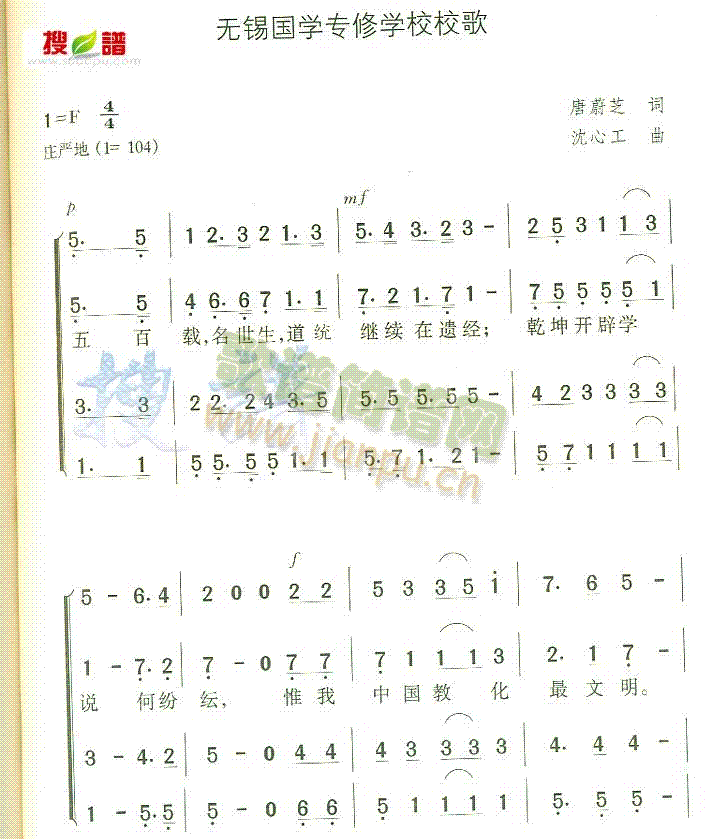 无锡国学专修学校校歌
搜 谱
www.sooopu.com
1=F 4/4
唐蔚芝 词
庄严地 (1= 104)
沈心工 曲
p mf
5. 5 | 1 2. 3 2 1. 3 | 5. 4 3. 2 3 - | 2 5 3 1 1 3
5. 5 | 4 6. 6 7 1. 1 | 7. 2 1. 7 1 - | 7 5 5 5 5 1
五 百 载,名世生,道统 继续在遗经; 乾坤开辟学
3. 3 | 2 2. 2 4 3. 5 | 5. 5 5. 5 5 - | 4 2 3 3 3 3
歌谱简谱网
www.jianpu.cn
1. 1 | 5 5. 5 5 1. 1 | 5. 7 1. 2 1 - | 5 7 1 1 1 1
f
5 - 6. 4 | 2 0 0 2 2 | 5 3 3 5 1 | 7. 6 5 -
1 - 7. 2 | 7 - 0 7 7 | 7 1 1 1 3 | 2. 1 7 -
说 何纷 纭, 惟我 中国教 化 最文明。
3 - 4. 2 | 5 - 0 4 4 | 4 3 3 3 3 | 4. 4 4 -
1 - 5. 5 | 5 - 0 6 6 | 5 1 1 1 1 | 5. 5 5 -